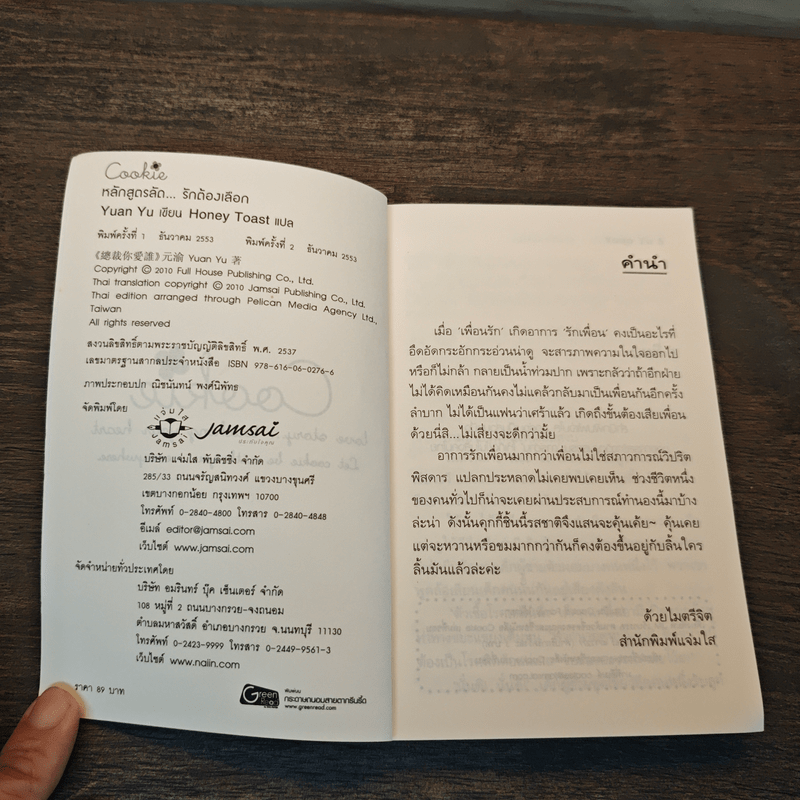 Cookie
หลักสูตรลัด... รักต้องเลือก
Yuan Yu เขียน Honey Toast แปล
พิมพ์ครั้งที่ 1 ธันวาคม 2553 พิมพ์ครั้งที่ 2 ธันวาคม 2553
《總裁你愛誰》元渝 Yuan Yu 著
Copyright © 2010 Full House Publishing Co., Ltd.
Thai translation copyright © 2010 Jamsai Publishing Co., Ltd.
Thai edition arranged through Pelican Media Agency Ltd.,
Taiwan
All rights reserved
สงวนลิขสิทธิ์ตามพระราชบัญญัติลิขสิทธิ์ พ.ศ. 2537
เลขมาตรฐานสากลประจำหนังสือ ISBN 978-616-06-0276-6
ภาพประกอบปก ณิชนันทน์ พงศ์นิพัทธ
จัดพิมพ์โดย
แจ่มใส
Jamsai
Jamsai
บริษัท แจ่มใส พับลิชชิ่ง จำกัด
285/33 ถนนจรัญสนิทวงศ์ แขวงบางขุนศรี
เขตบางกอกน้อย กรุงเทพฯ 10700
โทรศัพท์ 0-2840-4800 โทรสาร 0-2840-4848
อีเมล์ editor@jamsai.com
เว็บไซต์ www.jamsai.com
จัดจำหน่ายทั่วประเทศโดย
บริษัท อมรินทร์ บุ๊ค เซ็นเตอร์ จำกัด
108 หมู่ที่ 2 ถนนบางกรวย-จงถนอม
ตำบลมหาสวัสดิ์ อำเภอบางกรวย จ.นนทบุรี 11130
โทรศัพท์ 0-2423-9999 โทรสาร 0-2449-9561-3
เว็บไซต์ www.naiin.com
ราคา 89 บาท
Green Read
พิมพ์บน
กระดาษถนอมสายตากรีนรี้ด
www.greenread.com
คำนำ
เมื่อ ‘เพื่อนรัก’ เกิดอาการ ‘รักเพื่อน’ คงเป็นอะไรที่
อึดอัดกระอักกระอ่วนน่าดู จะสารภาพความในใจออกไป
หรือก็ไม่กล้า กลายเป็นน้ำท่วมปาก เพราะกลัวว่าถ้าอีกฝ่าย
ไม่ได้คิดเหมือนกันคงไม่แคล้วกลับมาเป็นเพื่อนกันอีกครั้ง
ลำบาก ไม่ได้เป็นแฟนว่าเศร้าแล้ว เกิดถึงขั้นต้องเสียเพื่อน
ด้วยนี่สิ...ไม่เสี่ยงจะดีกว่ามั้ย
อาการรักเพื่อนมากกว่าเพื่อนไม่ใช่สภาวการณ์วิปริต
พิสดาร แปลกประหลาดไม่เคยพบเคยเห็น ช่วงชีวิตหนึ่ง
ของคนทั่วไปก็น่าจะเคยผ่านประสบการณ์ทำนองนี้มาบ้าง
ล่ะน่า ดังนั้นคุกกี้ชิ้นนี้รสชาติจึงแสนจะคุ้นเค้ย~ คุ้นเคย
แต่จะหวานหรือขมมากกว่ากันก็คงต้องขึ้นอยู่กับลิ้นใคร
ลิ้นมันแล้วล่ะค่ะ
ด้วยไมตรีจิต
สำนักพิมพ์แจ่มใส